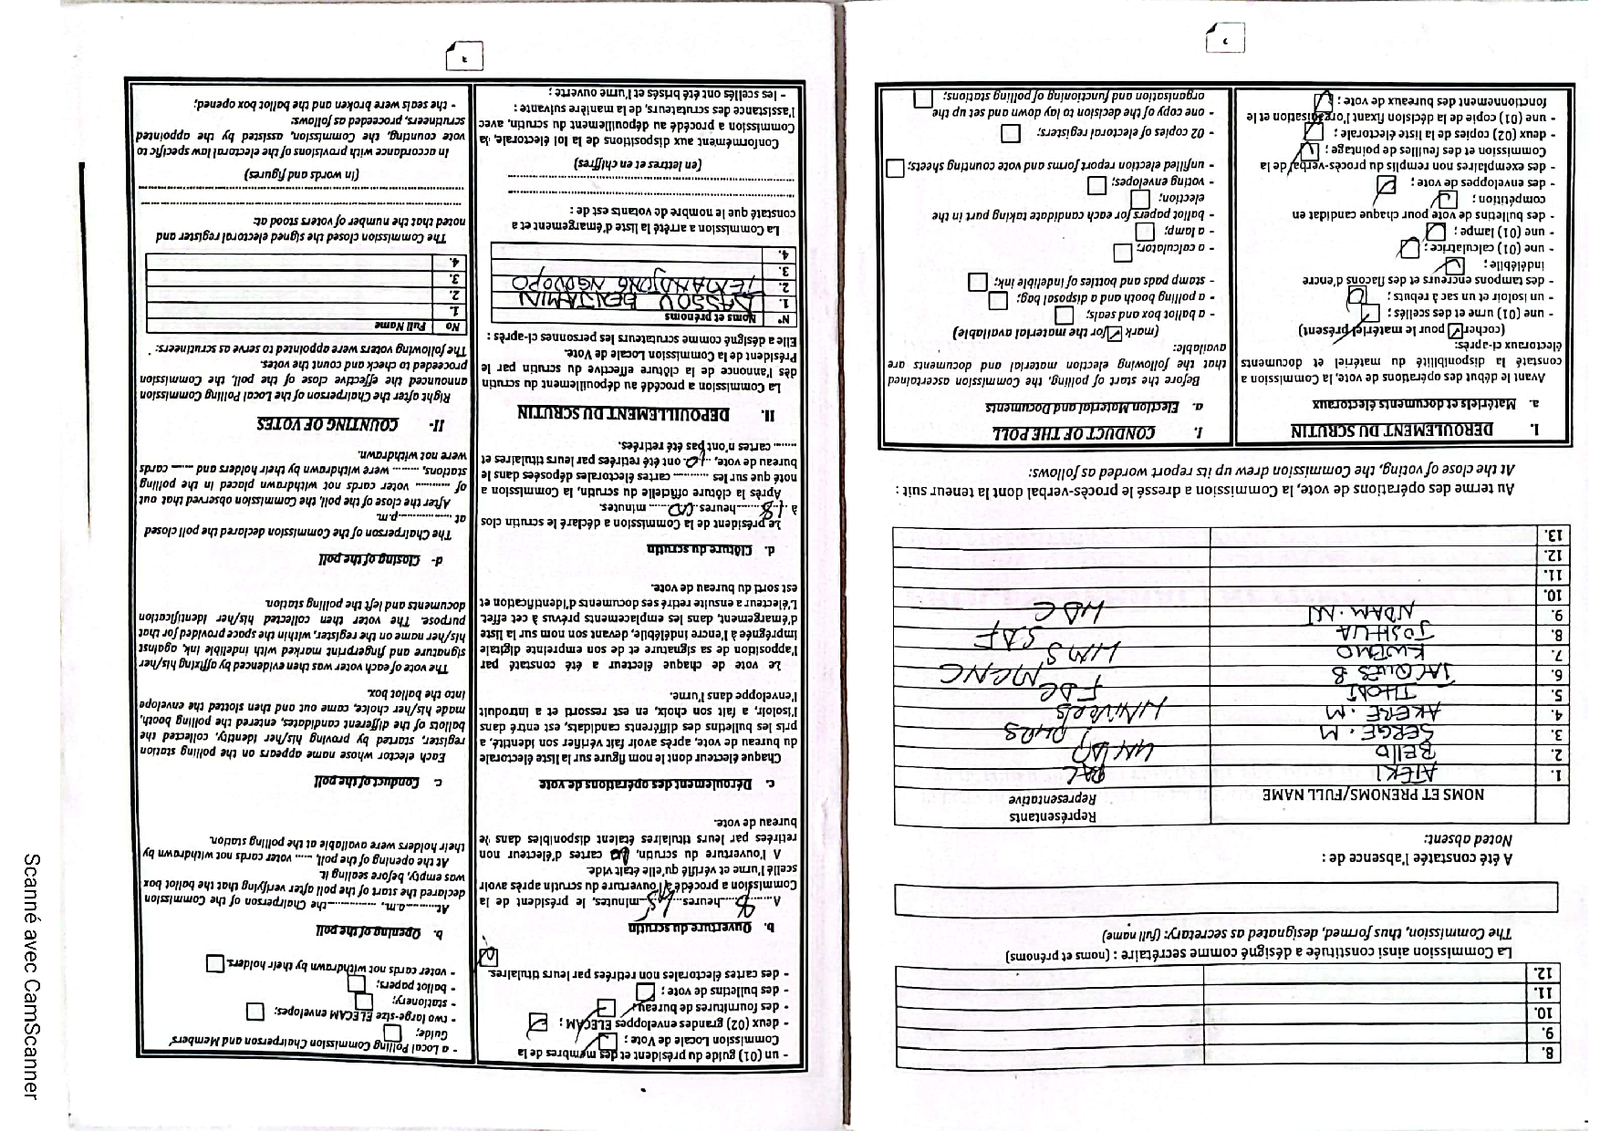 8.
9.
10.
11.
12.
La Commission ainsi constituée a désigné comme secrétaire : (noms et prénoms)
The Commission, thus formed, designated as secretary: (full name)
A été constatée l'absence de :
Noted absent:
NOMS ET PRENOMS/FULL NAME
Représentants
Representative
1. ATEKI
2. BELLO UNDP
3. SERGE . M
4. AKERE . M Univers
5. FDC
6. JACQUES B
7. KWEMO UMS
8. JOSHUA SDF
9. NDAM . NJ UDC
10.
11.
12.
13.
Au terme des opérations de vote, la Commission a dressé le procès-verbal dont la teneur suit :
At the close of voting, the Commission drew up its report worded as follows:
I. DEROULEMENT DU SCRUTIN
a. Matériels et documents électoraux
Avant le début des opérations de vote, la Commission a
constaté la disponibilité du matériel et documents
électoraux ci-après:
(cocher ✓ pour le matériel présent)
- une (01) urne et des scellés ;
- un isoloir et un sac à rebuts ;
- des tampons encreurs et des flacons d'encre
indélébile ;
- une (01) calculatrice ;
- une (01) lampe ;
- des bulletins de vote pour chaque candidat en
compétition ;
- des enveloppes de vote ;
- des exemplaires non remplis du procès-verbal de la
Commission et des feuilles de pointage ;
- deux (02) copies de la liste électorale ;
- une (01) copie de la décision fixant l'organisation et le
fonctionnement des bureaux de vote ;
I. CONDUCT OF THE POLL
a. Election Material and Documents
Before the start of polling, the Commission ascertained
that the following election material and documents are
available:
(mark ✓ for the material available)
- a ballot box and seals;
- a polling booth and a disposal bag;
- stamp pads and bottles of indelible ink;
- a calculator;
- a lamp;
- ballot papers for each candidate taking part in the
election;
- voting envelopes;
- unfilled election report forms and vote counting sheets;
- 02 copies of electoral registers;
- one copy of the decision to lay down and set up the
organisation and functioning of polling stations;
- un (01) guide du président et des membres de la
Commission Locale de Vote ;
- deux (02) grandes enveloppes ELECAM ;
- des fournitures de bureau ;
- des bulletins de vote ;
- des cartes électorales non retirées par leurs titulaires.
b. Ouverture du scrutin
A 8 heures 45 minutes, le président de la
Commission a procédé à l'ouverture du scrutin après avoir
scellé l'urne et vérifié qu'elle était vide.
A l'ouverture du scrutin, cartes d'électeur non
retirées par leurs titulaires étaient disponibles dans le
bureau de vote.
c. Déroulement des opérations de vote
Chaque électeur dont le nom figure sur la liste électorale
du bureau de vote, après avoir fait vérifier son identité, a
pris les bulletins des différents candidats, est entré dans
l'isoloir, a fait son choix, en est ressorti et a introduit
l'enveloppe dans l'urne.
Le vote de chaque électeur a été constaté par
l'apposition de sa signature et de son empreinte digitale
imprégnée à l'encre indélébile, devant son nom sur la liste
d'émargement, dans les emplacements prévus à cet effet.
L'électeur a ensuite retiré ses documents d'identification et
est sorti du bureau de vote.
d. Clôture du scrutin
Le président de la Commission a déclaré le scrutin clos
à 18 heures 00 minutes.
Après la clôture officielle du scrutin, la Commission a
noté que sur les ......... cartes électorales déposées dans le
bureau de vote, ont été retirées par leurs titulaires et
...... cartes n'ont pas été retirées.
II. DEPOUILLEMENT DU SCRUTIN
La Commission a procédé au dépouillement du scrutin
dès l'annonce de la clôture effective du scrutin par le
Président de la Commission Locale de Vote.
Elle a désigné comme scrutateurs les personnes ci-après :
N° Noms et prénoms
1. BENJAMIN
2.
3.
4.
La Commission a arrêté la liste d'émargement et a
constaté que le nombre de votants est de :
(en lettres et en chiffres)
Conformément aux dispositions de la loi électorale, la
Commission a procédé au dépouillement du scrutin, avec
l'assistance des scrutateurs, de la manière suivante :
- les scellés ont été brisés et l'urne ouverte ;
- a Local Polling Commission Chairperson and Members'
Guide;
- two large-size ELECAM envelopes;
- stationery;
- ballot papers;
- voter cards not withdrawn by their holders.
b. Opening of the poll
At.........a.m. ............the Chairperson of the Commission
declared the start of the poll after verifying that the ballot box
was empty, before sealing it.
At the opening of the poll, ..... voter cards not withdrawn by
their holders were available at the polling station.
c. Conduct of the poll
Each elector whose name appears on the polling station
register, started by proving his/her identity, collected the
ballots of the different candidates, entered the polling booth,
made his/her choice, came out and then slotted the envelope
into the ballot box.
The vote of each voter was then evidenced by affixing his/her
signature and fingerprint marked with indelible ink, against
his/her name on the register, within the space provided for that
purpose. The voter then collected his/her identification
documents and left the polling station.
d- Closing of the poll
The Chairperson of the Commission declared the poll closed
at ................p.m.
After the close of the poll, the Commission observed that out
of ......... voter cards not withdrawn placed in the polling
stations, ........ were withdrawn by their holders and ...... cards
were not withdrawn.
II- COUNTING OF VOTES
Right after the Chairperson of the Local Polling Commission
announced the effective close of the poll, the Commission
proceeded to check and count the votes.
The following voters were appointed to serve as scrutineers:
No Full Name
1.
2.
3.
4.
The Commission closed the signed electoral register and
noted that the number of voters stood at:
(in words and figures)
In accordance with provisions of the electoral law specific to
vote counting, the Commission, assisted by the appointed
scrutineers, proceeded as follows:
- the seals were broken and the ballot box opened;
Scanné avec CamScanner